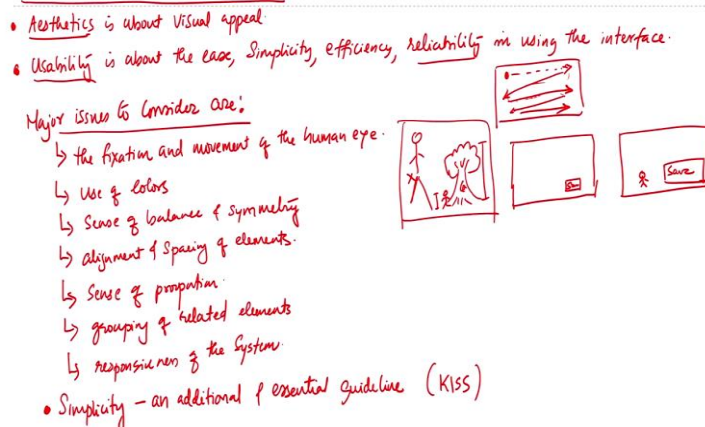 • Aesthetics is about visual appeal.
• Usability is about the ease, Simplicity, efficiency, reliability in using the interface.
Major issues to consider are:
↳ the fixation and movement of the human eye.
↳ use of colors
↳ Sense of balance & symmetry
↳ alignment & spacing of elements.
↳ Sense of proportion.
↳ grouping of related elements
↳ responsiveness of the system.
• Simplicity – an additional & essential guideline (KISS)
Save